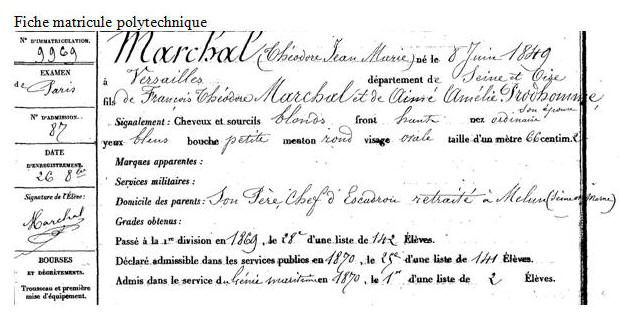 Fiche matricule polytechnique
N° D'IMMATRICULATION.
9969
EXAMEN
de Paris
N° D'ADMISSION.
87
DATE
D'ENREGISTREMENT.
26 8bre
Signature de l'Élève:
Marchal
BOURSES
ET DÉGRÈVEMENTS.
Trousseau et première
mise d'équipement.
Marchal (Théodore Jean Marie) né le 8 Juin 1849
à Versailles département de Seine et Oise
fils de François Théodore Marchal et de Aimé Amélie Prodhomme
son épouse
Signalement: Cheveux et sourcils blonds front haut nez ordinaire
yeux bleus bouche petite menton rond visage ovale taille d'un mètre 66 centim.
Marques apparentes:
Services militaires:
Domicile des parents: Son Père, Chef d'Escadron retraité à Melun (Seine et Marne)
Grades obtenus:
Passé à la 1re division en 1869, le 28e d'une liste de 142 Élèves.
Déclaré admissible dans les services publics en 1870, le 25e d'une liste de 141 Élèves.
Admis dans le service du Génie maritime en 1870, le 1er d'une liste de 2 Élèves.